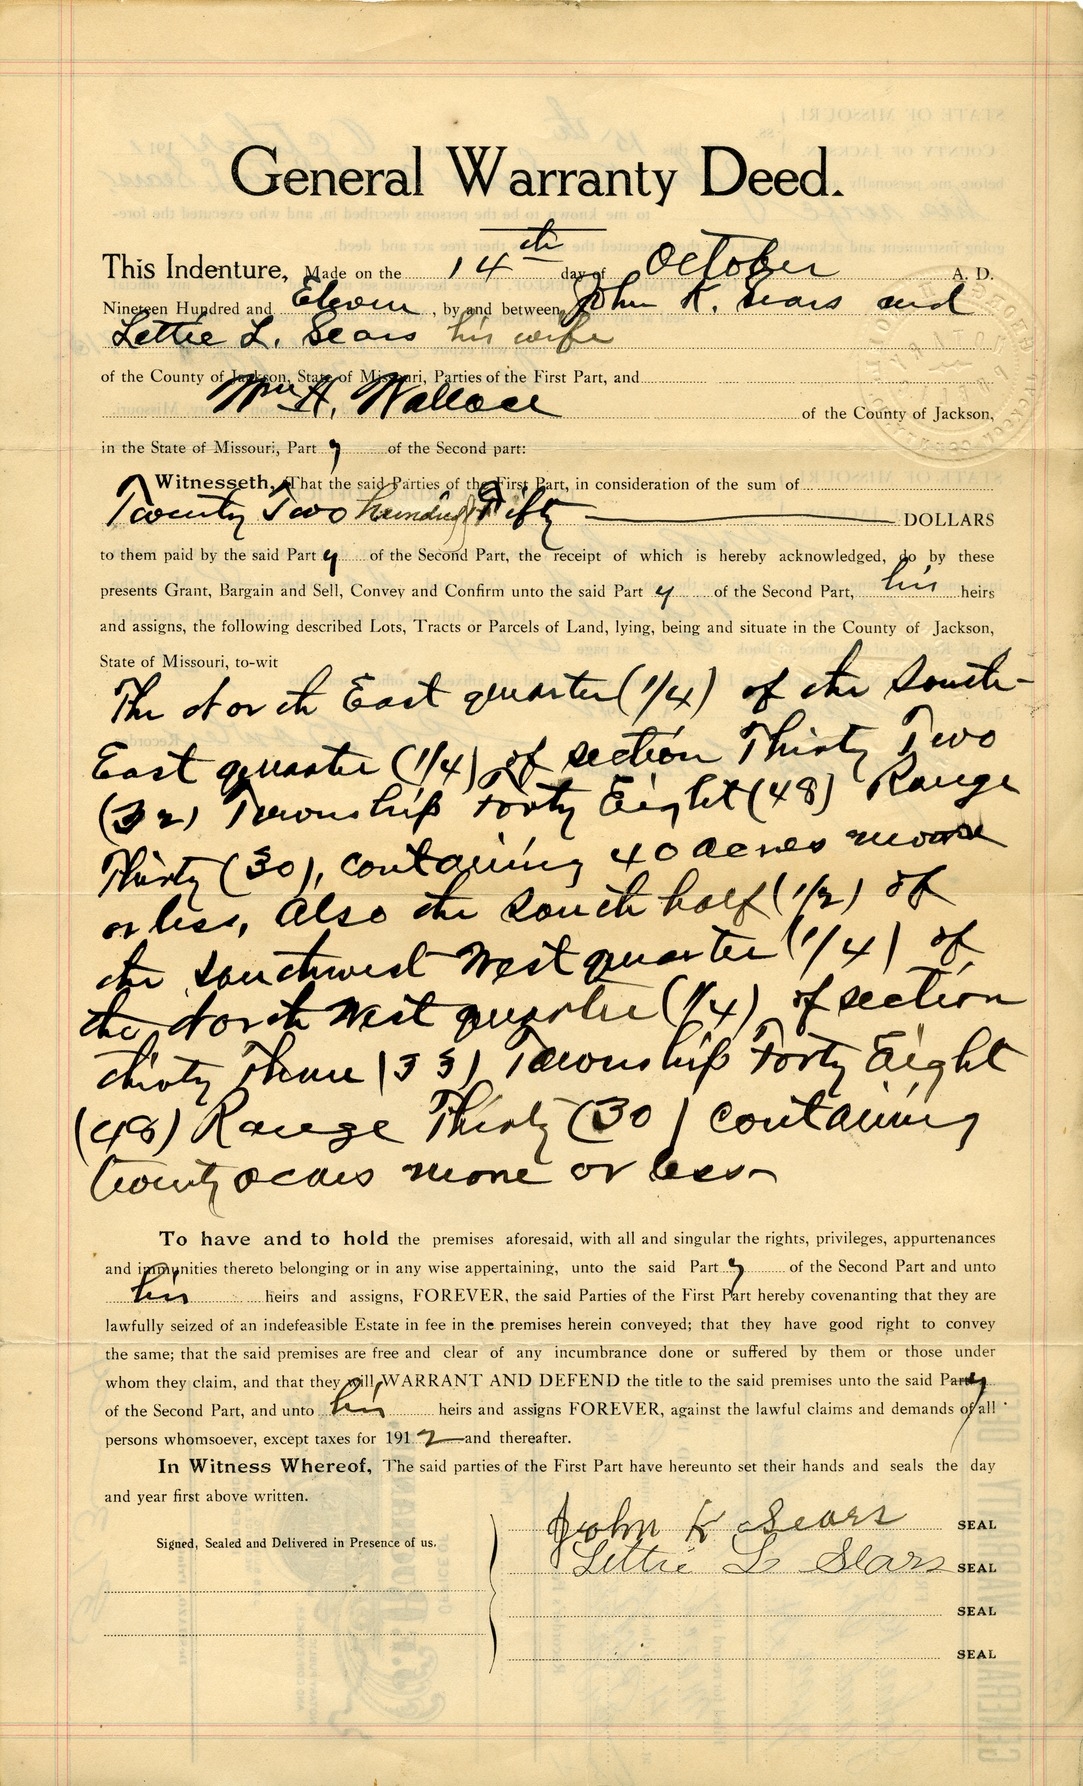 General Warranty Deed.
This Indenture, Made on the 14th day of October A. D.
Nineteen Hundred and Eleven, by and between John K. Sears and
Lettie L. Sears his wife
of the County of Jackson, State of Missouri, Parties of the First Part, and
Wm H. Wallace of the County of Jackson,
in the State of Missouri, Part y of the Second part:
Witnesseth, That the said Parties of the First Part, in consideration of the sum of
Twenty Two hundred & Fifty DOLLARS
to them paid by the said Part y of the Second Part, the receipt of which is hereby acknowledged, do by these
presents Grant, Bargain and Sell, Convey and Confirm unto the said Part y of the Second Part, his heirs
and assigns, the following described Lots, Tracts or Parcels of Land, lying, being and situate in the County of Jackson,
State of Missouri, to-wit
The North East quarter (1/4) of the South-
East quarter (1/4) of section Thirty Two
(32) Township Forty Eight (48) Range
Thirty (30), containing 40 acres more
or less, Also the South half (1/2) of
the southwest West quarter (1/4) of
the North West quarter (1/4) of section
thirty Three (33) Township Forty Eight
(48) Range Thirty (30) containing
twenty acres more or less-
To have and to hold the premises aforesaid, with all and singular the rights, privileges, appurtenances
and immunities thereto belonging or in any wise appertaining, unto the said Part y of the Second Part and unto
his heirs and assigns, FOREVER, the said Parties of the First Part hereby covenanting that they are
lawfully seized of an indefeasible Estate in fee in the premises herein conveyed; that they have good right to convey
the same; that the said premises are free and clear of any incumbrance done or suffered by them or those under
whom they claim, and that they will WARRANT AND DEFEND the title to the said premises unto the said Part y
of the Second Part, and unto his heirs and assigns FOREVER, against the lawful claims and demands of all
persons whomsoever, except taxes for 1912 and thereafter.
In Witness Whereof, The said parties of the First Part have hereunto set their hands and seals the day
and year first above written.
Signed, Sealed and Delivered in Presence of us.
John K Sears SEAL
Lettie L Sears SEAL
SEAL
SEAL